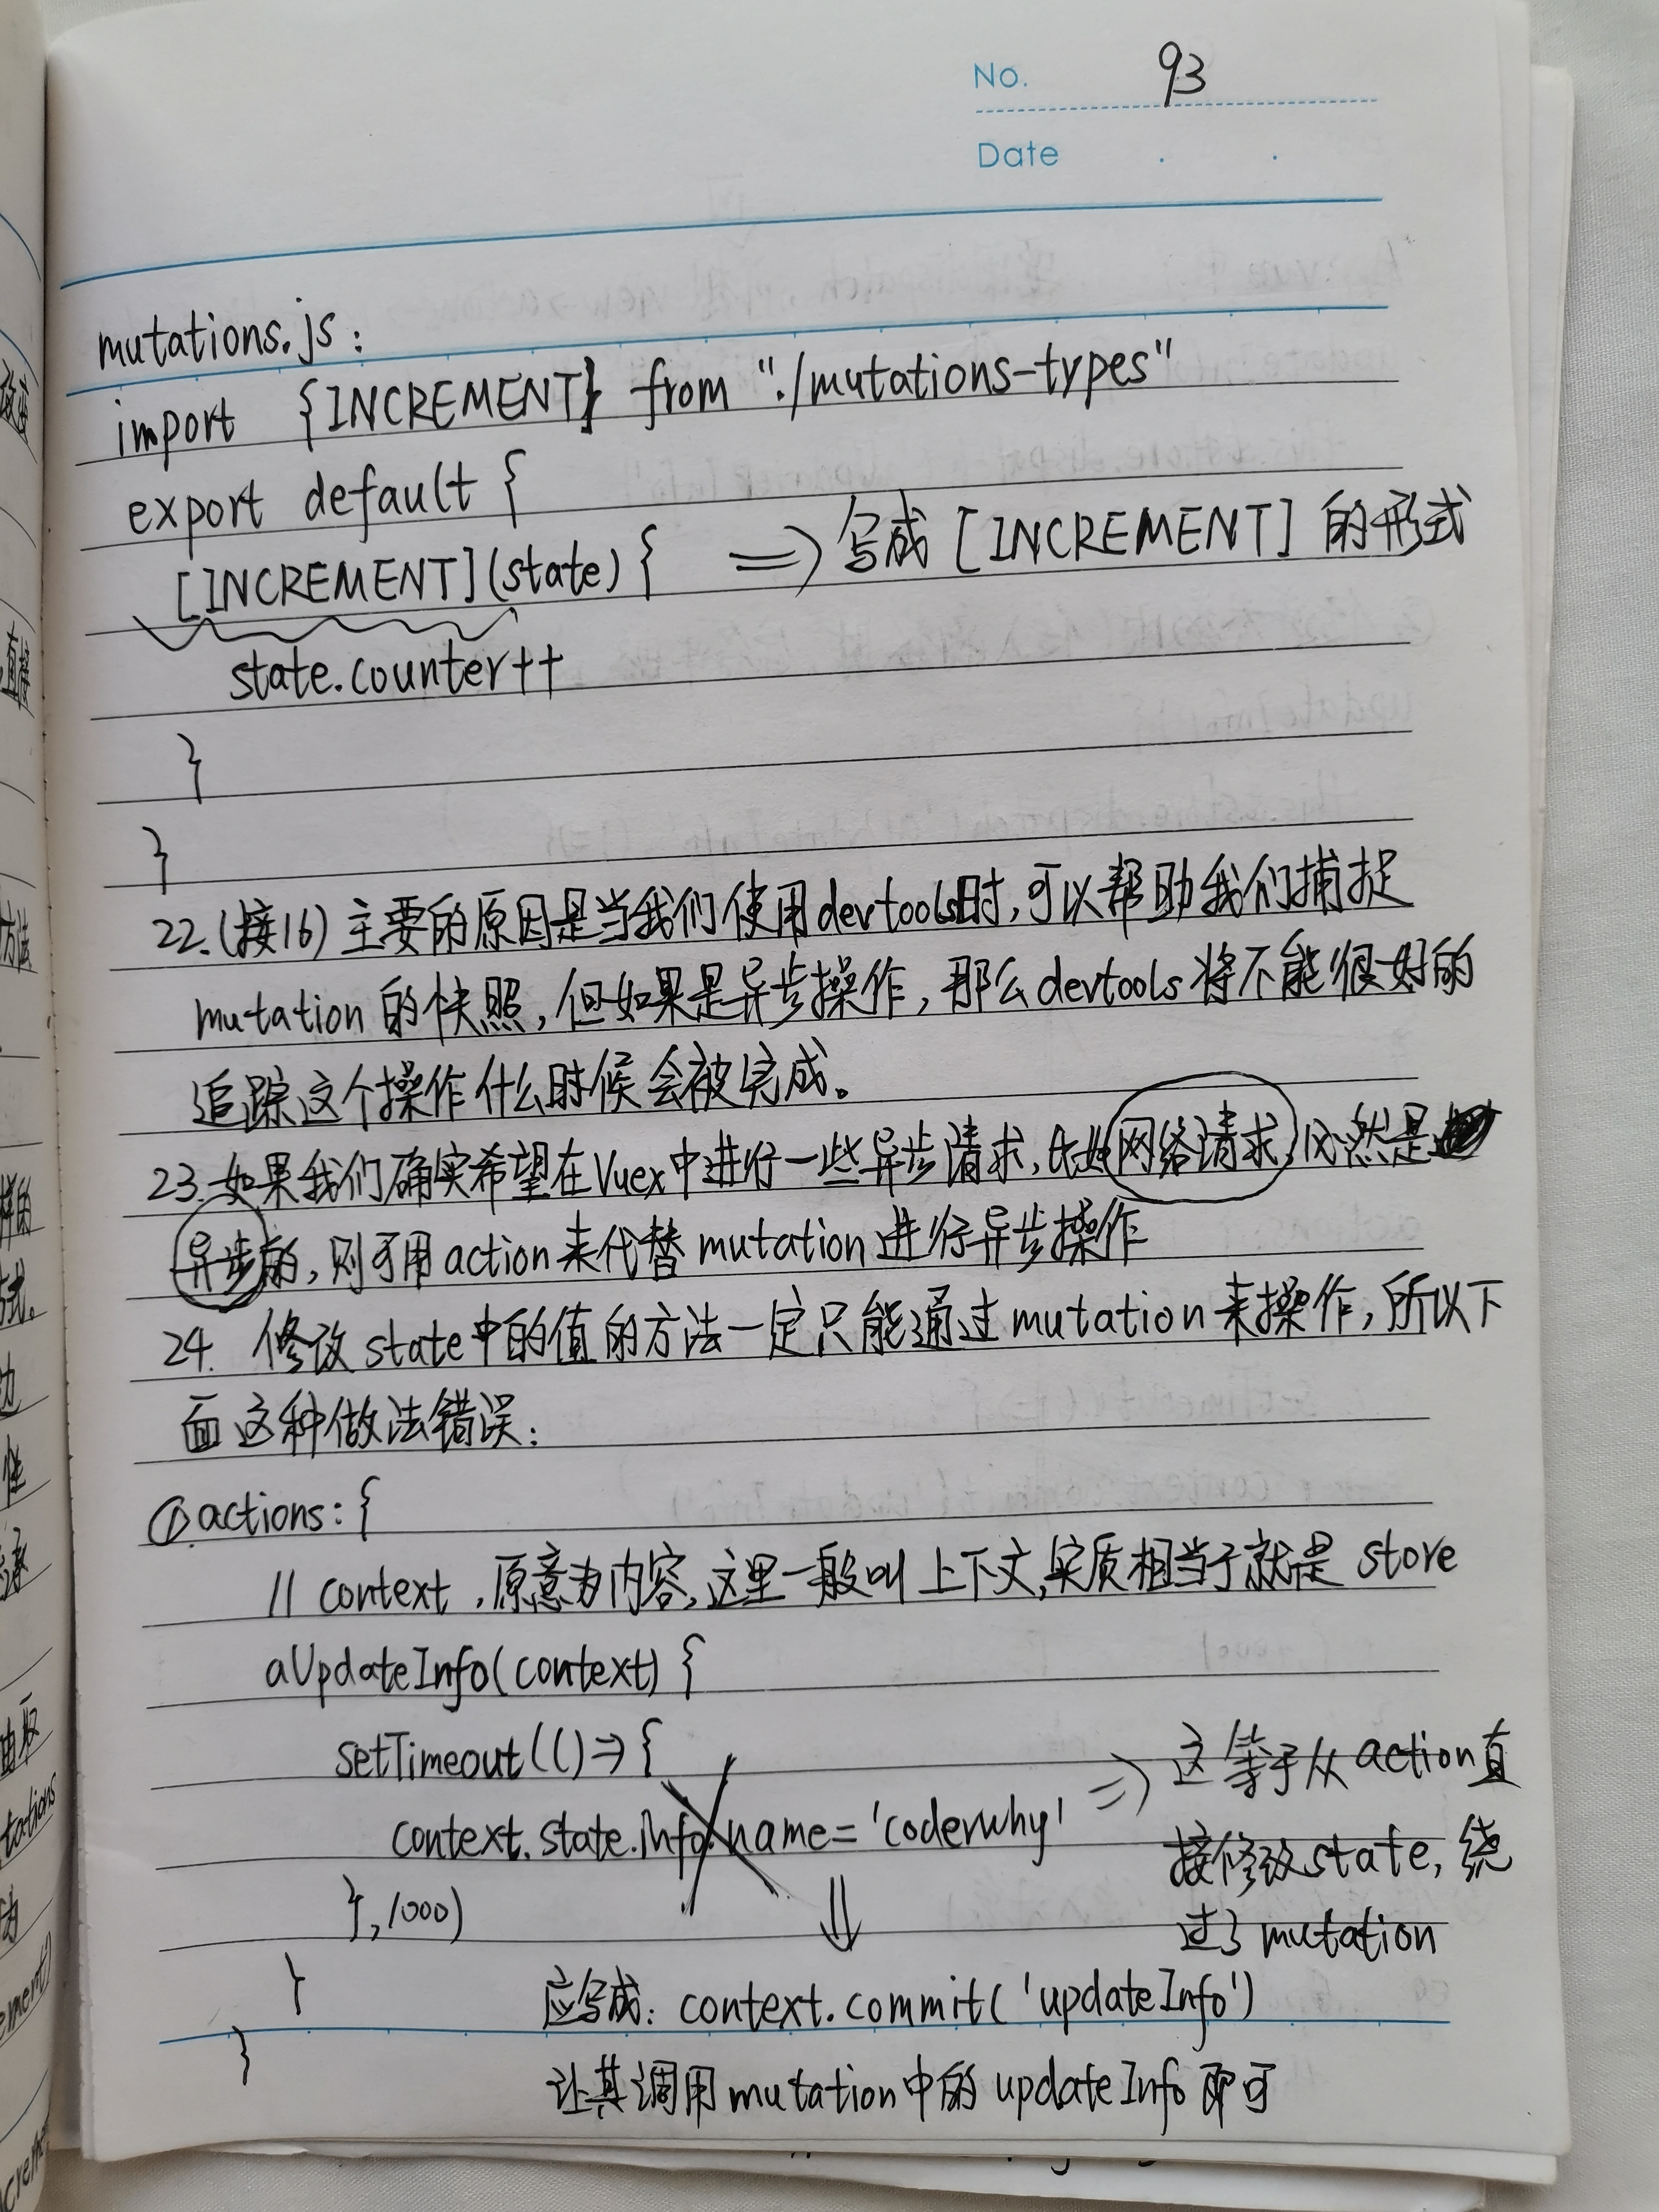 No. 93
Date
mutations.js:
import {INCREMENT} from "./mutations-types"
export default {
[INCREMENT](state){ => 写成[INCREMENT]的形式
state.counter++
}
}
22.(接16)主要的原因是当我们使用devtools时,可以帮助我们捕捉
mutation的快照,但如果是异步操作,那么devtools将不能很好的
追踪这个操作什么时候会被完成。
23.如果我们确实希望在Vuex中进行一些异步请求,比如网络请求,必然是
异步的,则可用action来代替mutation进行异步操作
24. 修改state中的值的方法一定只能通过mutation来操作,所以下
面这种做法错误:
①actions:{
// context,原意为内容,这里一般叫上下文,实质相当于就是store
aUpdateInfo(context){
setTimeout(()=>{
context.state.info.name='coderwhy' => 这等于从action直
接修改state,绕
},1000)
过了mutation
}
应写成: context.commit('updateInfo')
}
让其调用mutation中的updateInfo即可